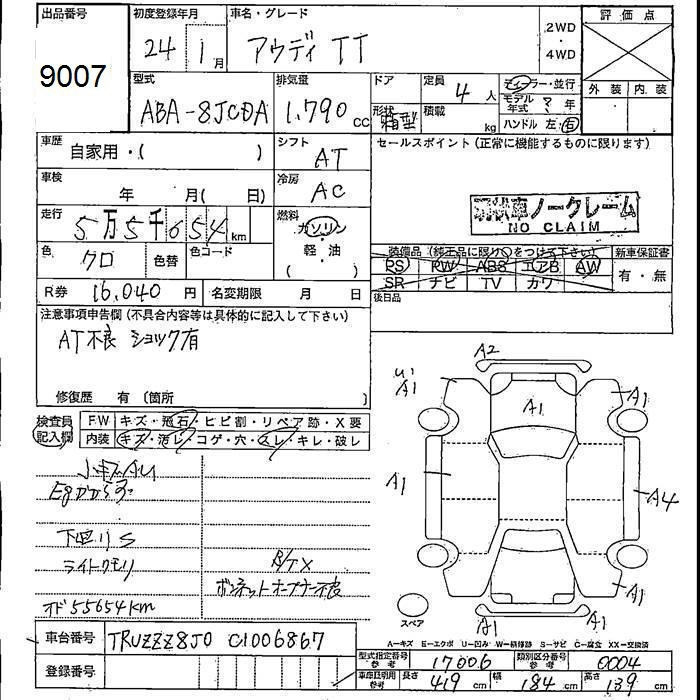 出品番号
9007
初度登録年月
24 1月
車名・グレード
アウディ TT
2WD
・
4WD
評価点
外装 内装
型式
ABA-8JCDA
排気量
1,790 cc
ドア
形状
箱型
定員
4人
積載
kg
ディーラー・並行
モデル年式 ? 年
ハンドル 左・右
車歴
自家用・( )
シフト
AT
セールスポイント (正常に機能するものに限ります)
車検
年 月( 日)
冷房
AC
現状車ノークレーム
NO CLAIM
走行
5万5千654km
燃料
ガソリン
・
軽・油
( )
色
クロ
色替
色コード
装備品 (純正品に限り○をつけて下さい)
PS RW ABS エアB AW
SR ナビ TV カワ
新車保証書
有・無
R券 16,040 円
名変期限 月 日
後日品
注意事項申告欄 (不具合内容等は具体的に記入して下さい)
AT不良 ショック有
修復歴 有 (箇所 )
検査員
記入欄
FW キズ・飛石・ヒビ割・リペア跡・X要
内装 キズ・汚レ・コゲ・穴・スレ・キレ・破レ
小キズAU
下回りS
ライトクモリ
オド55654km
R/TX
ボンネットオープナー不良
A2
A1
A1
A1
A1
A4
A1
A1
A1
スペア
A―キズ E―エクボ U―凹み W―補修跡 S―サビ C―腐食 XX―交換済
車台番号 TRUZZZ8J0 C1006867
登録番号
型式指定番号 参考 17006
類別区分番号 参考 0004
車庫証明用 参考 長さ 419 cm 幅 184 cm 高さ 139 cm